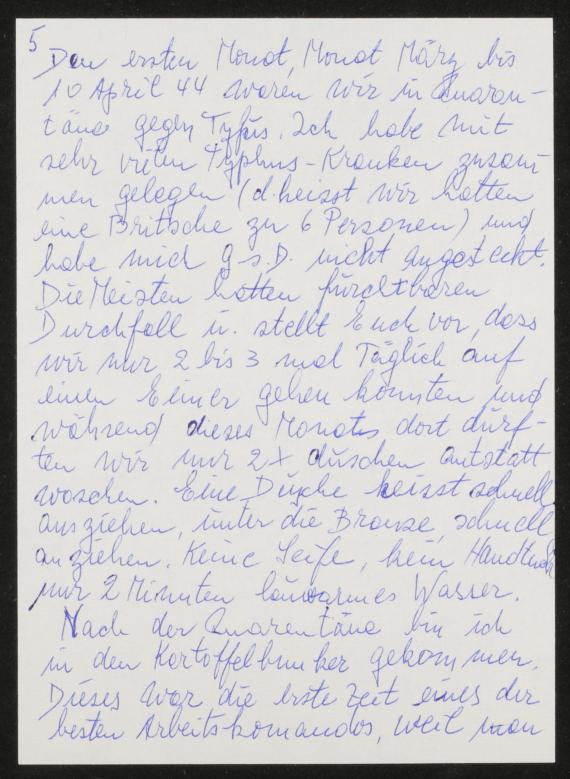 5
Den ersten Monat, Monat März bis
10 April 44 waren wir in Quaran-
täne gegen Tyfus. Ich habe mit
sehr vielen Typhus-Kranken zusam-
men gelegen (d.heisst wir hatten
eine Britsche zu 6 Personen) und
habe mich g.s.D. nicht angesteckt.
Die Meisten hatten furchtbaren
Durchfall u. stellt Euch vor, dass
wir nur 2 bis 3 mal Täglich auf
einen Eimer gehen konnten und
während dieses Monats dort durf-
ten wir nur 2x duschen anstatt
waschen. Eine Dusche heisst schnell
ausziehen, unter die Brause, schnell
anziehen. Keine Seife, kein Handtuch
nur 2 Minuten lauwarmes Wasser.
Nach der Quarentäne bin ich
in den Kartoffelbunker gekommen.
Dieses war die erste Zeit eines der
besten Arbeitskomandos, weil man